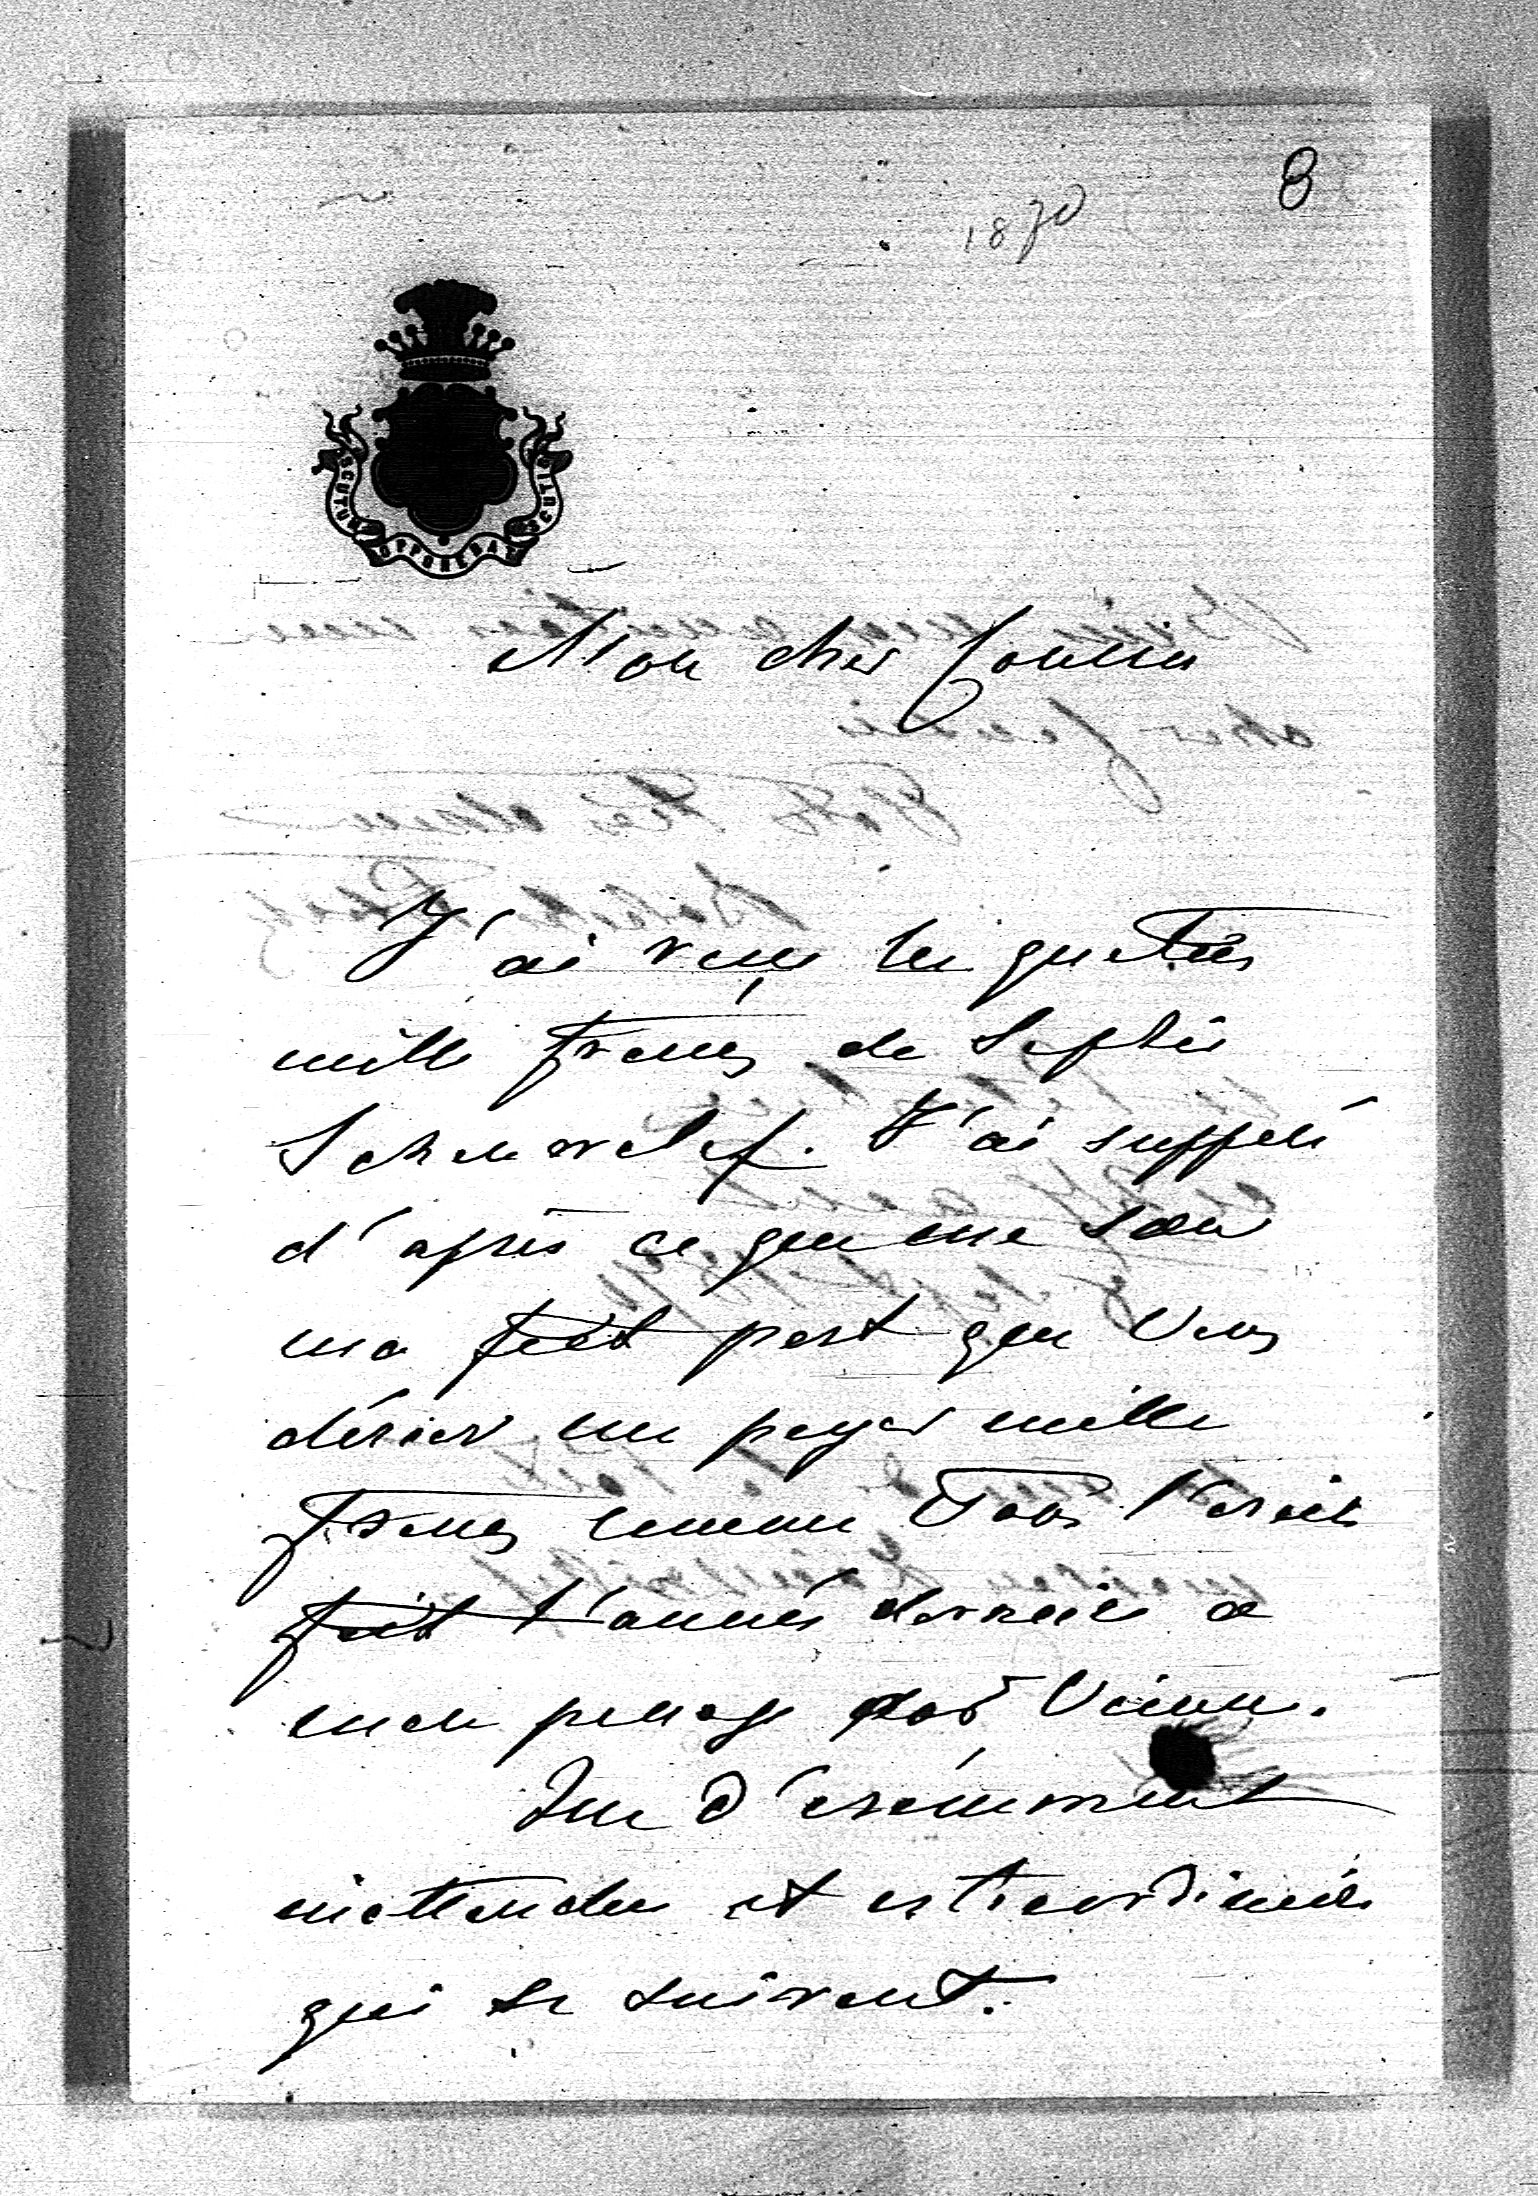 8
1870
SCUTUM OPPONEBAT SCUTIS
Mon cher Cousin
J'ai reçu les quatres
mille francs de Sophie
Schouvalof. J'ai
d'après ce que me sœur
ma fait part que Vous
désiez me payer mille
francs comme Vous l'aviez
fait l'année dernière a
mon passage par Vienne.
Que d'evenement
inattendus et extraordinaires
qui se suivent.